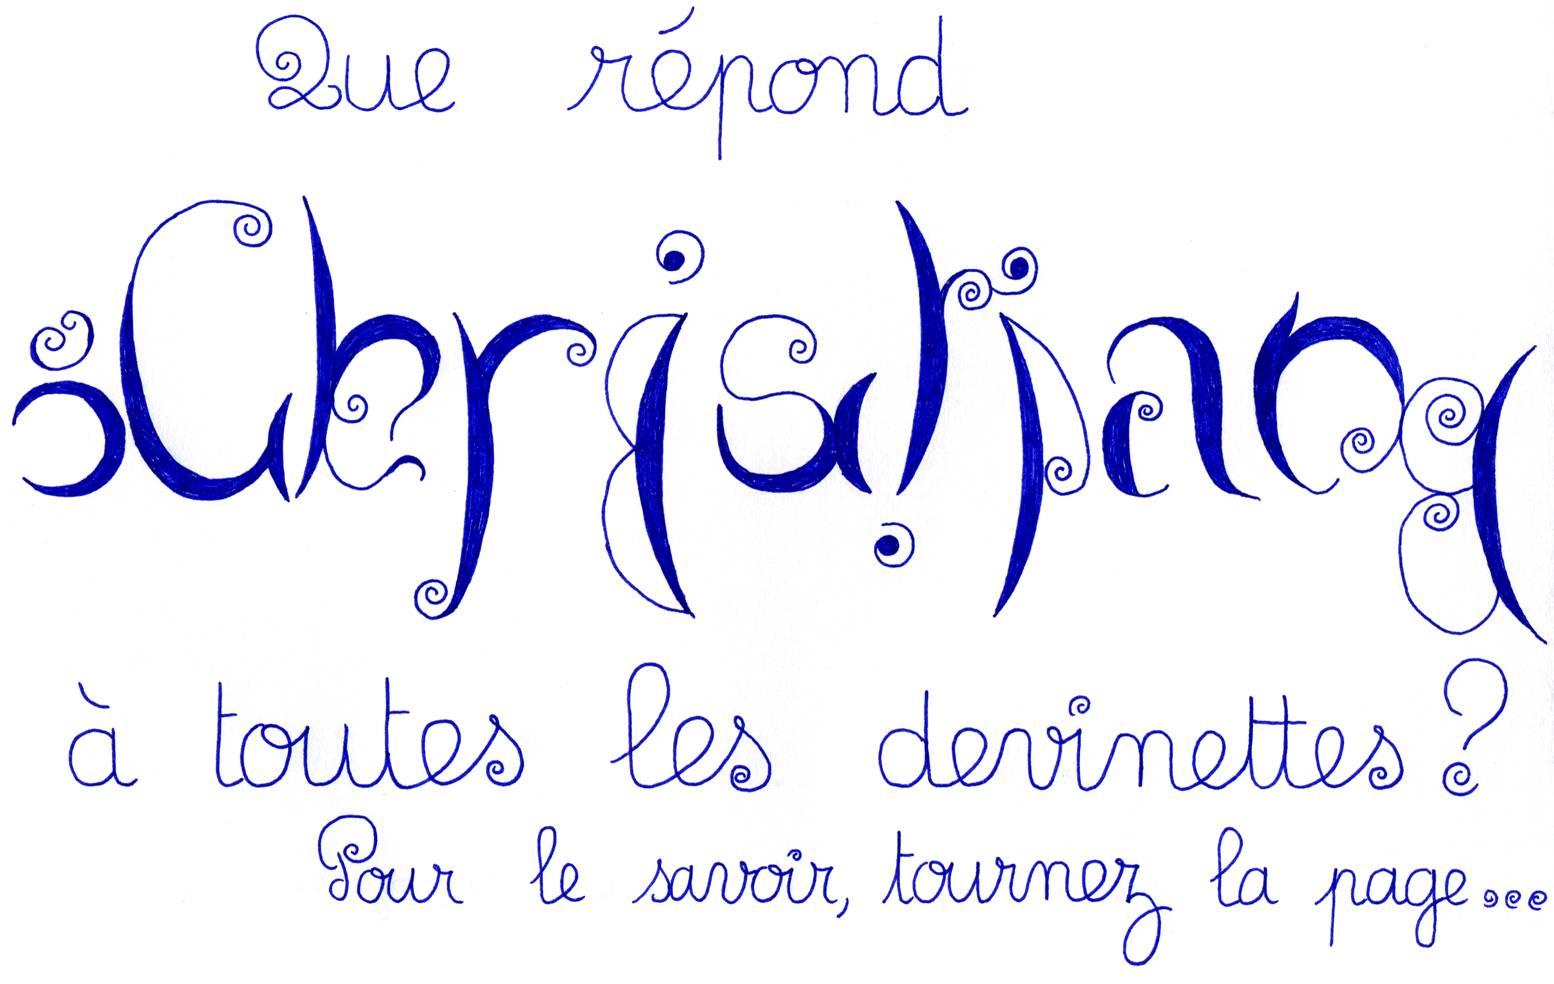 Que répond
Christian
à toutes les devinettes ?
Pour le savoir, tournez la page...